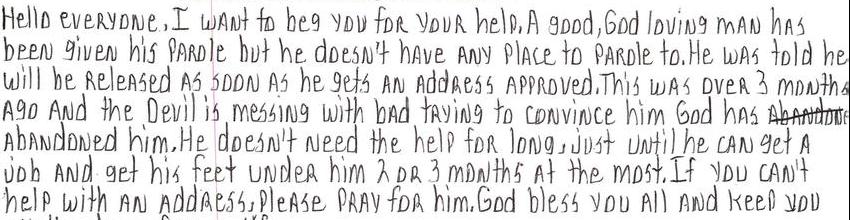 Hello everyone, I want to beg you for your help. A good, God loving man has
been given his parole but he doesn't have any place to parole to. He was told he
will be released as soon as he gets an address approved. This was over 3 months
ago and the Devil is messing with bad trying to convince him God has
abandoned him. He doesn't need the help for long, just until he can get a
job and get his feet under him 2 or 3 months at the most. If you can't
help with an address, please pray for him. God bless you all and keep you